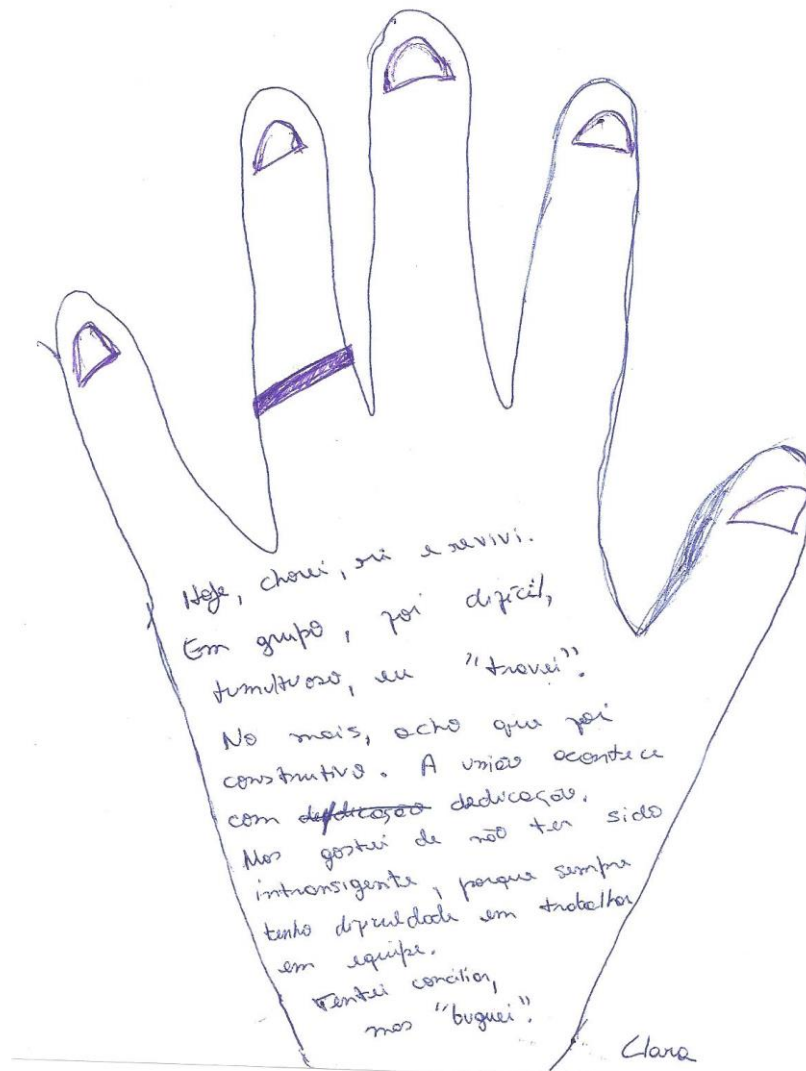 Hoje, chorei, ri e revivi.
Em grupo, foi difícil,
tumultuoso, eu "travei".
No mais, acho que foi
construtivo. A união acontece
com dedicação.
Mas gostei de não ter sido
intransigente, porque sempre
tenho dificuldade em trabalhar
em equipe.
Tentei conciliar,
mas "buguei".
Clara